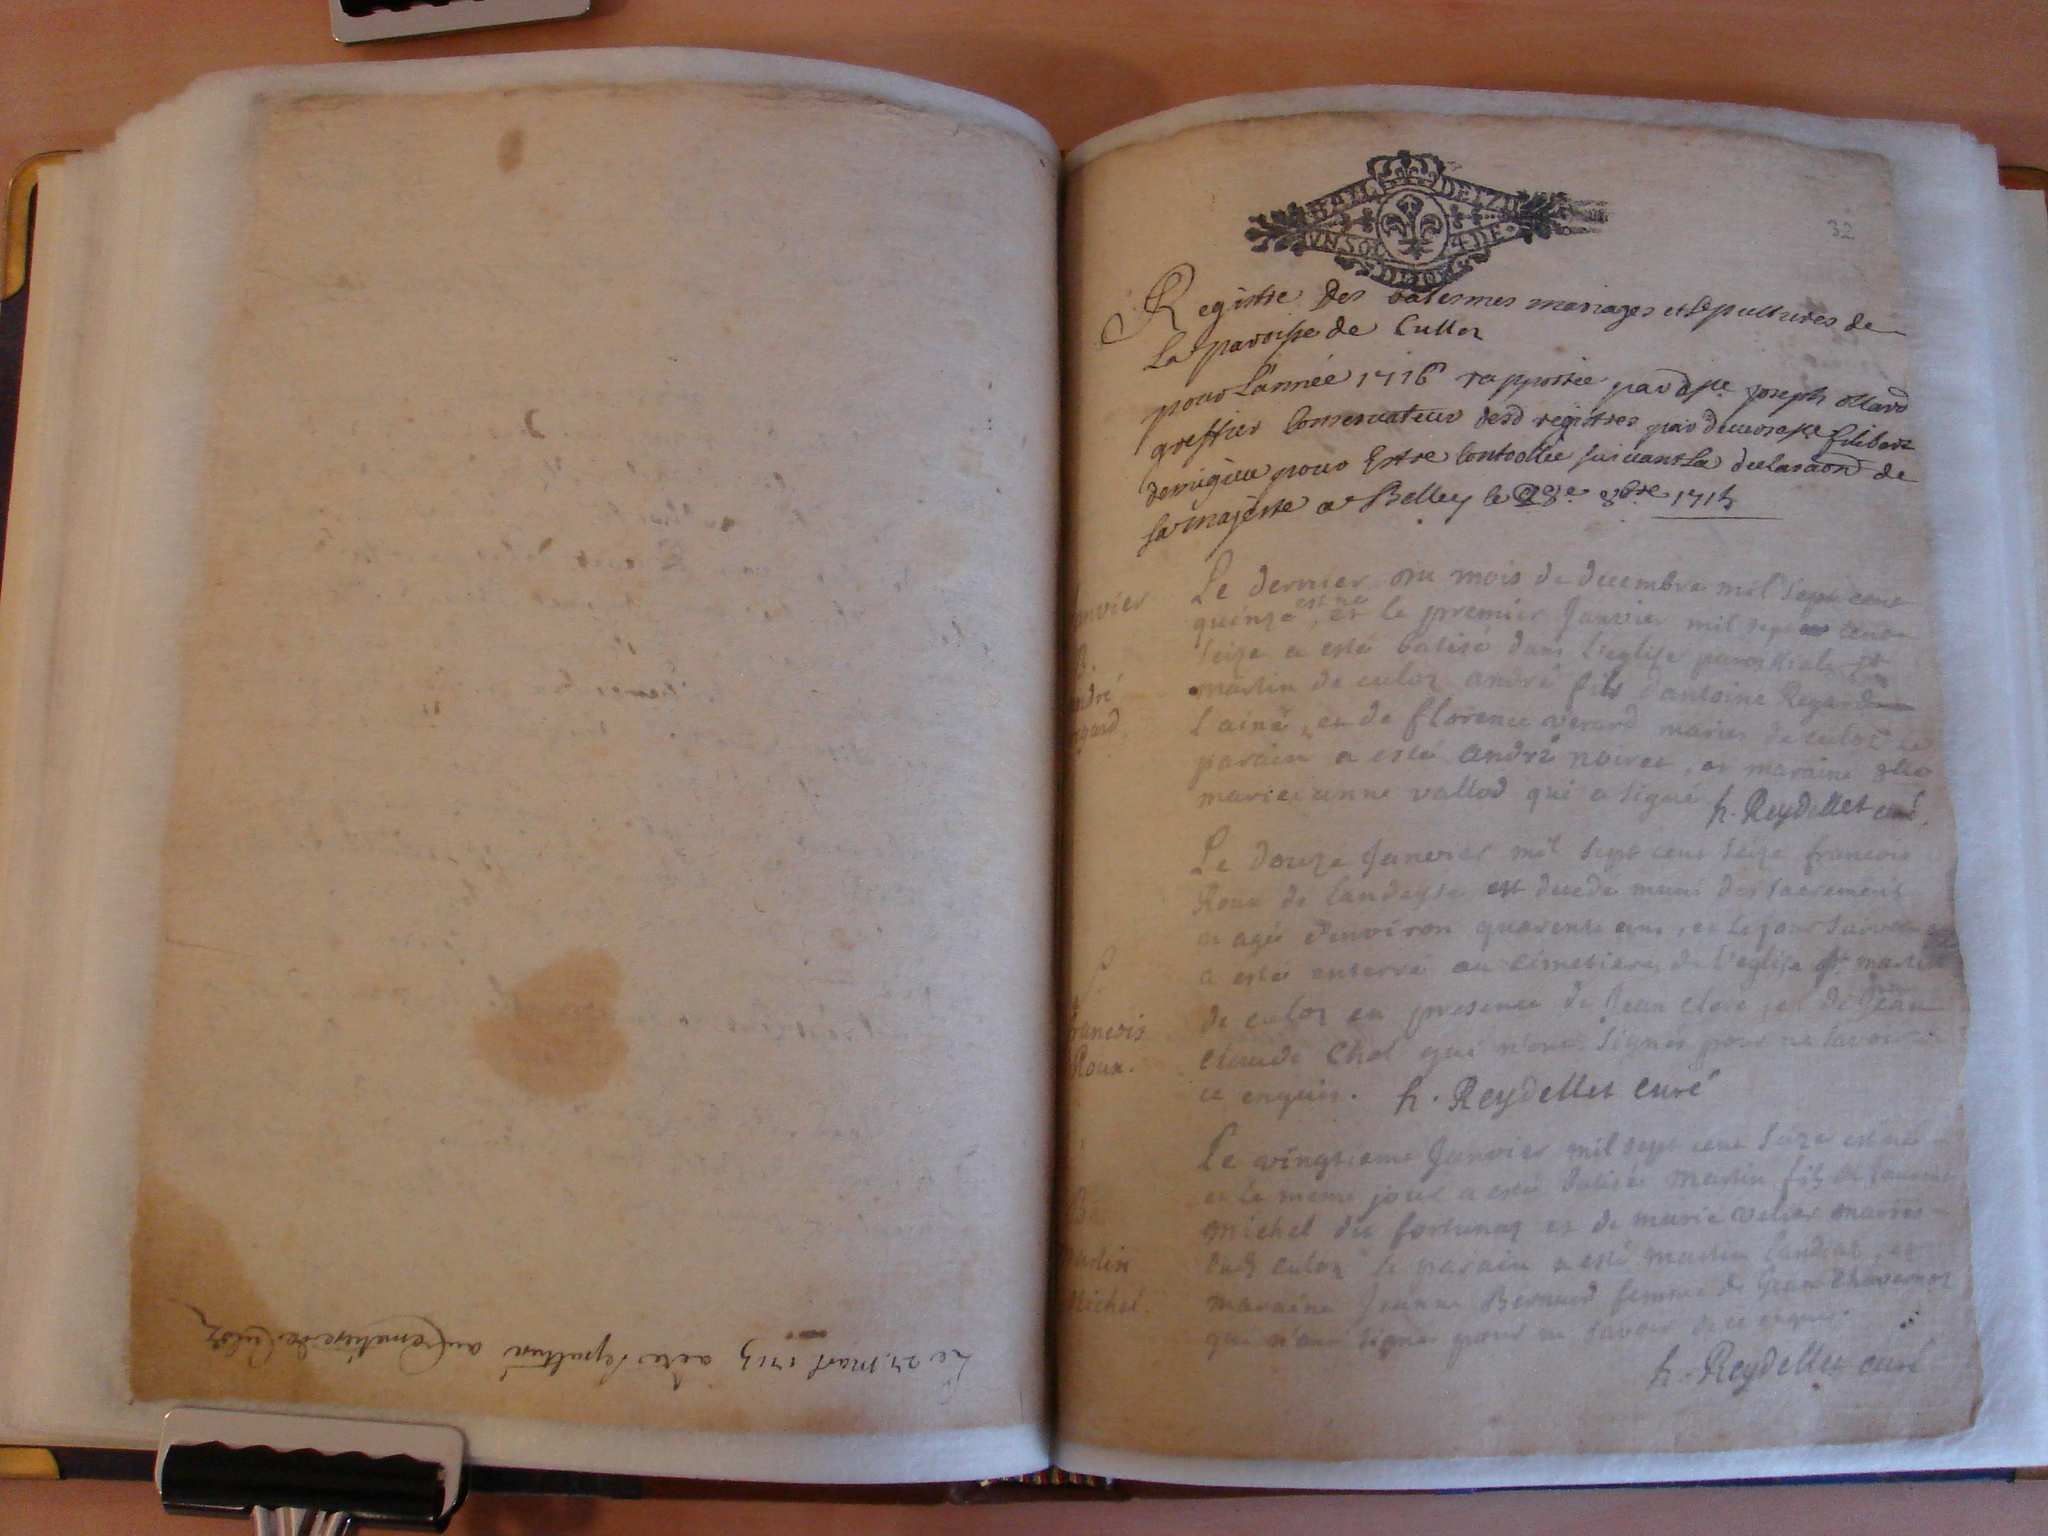 Le 27. mars 1715 acte sepulture au Cemetiere de Culoz
32
GENERAL DEIZO
UN SOL 4 DE
Registre des batesmes mariages et sepultures de
La paroisse de Culloz
pour L'année 1716 rapportée par Joseph ollard
greffier Conservateur desd registres par devers filibert
demigieu pour Estre Controllée suivant La declaraon de
sa majeste a Belley le 28e. 8bre 1715
Janvier
Le dernier du mois de decembre mil sept cent
est né
quinze, et le premier Janvier mil sept cent
B.
seize a esté batisé dans l'eglise paroissiale st
andré
martin de culoz andré fils d'antoine Regard
Regard
l'ainé, et de florence averard mariés de culoz le
parain a esté andré noiret, et maraine dlle
marie anne vallod qui a signé h. Reydellet curé.
Le douze Janvier mil sept cent seize francois
Roux de landaysse est decedé muni des sacrements
et agé d'environ quarente ans, et le jour suivant
S
a esté enterré au cimetiere de l'eglise st martin
francois
de culoz en presence de Jean clerc, et de Jean
Roux.
claude Chel qui n'ont signés pour ne savoir
ce enquis. h. Reydellet curé
Le vingtieme Janvier mil sept cent seize est né
Ba
et le meme jour a esté batisé martin fils de
michel dit fortunaz et de marie velier mariés
martin
dud culoz le parain a esté martin landraz, et
michel.
maraine Jeanne Bernard femme de Jean Chavernoz
qui n'ont signés pour ne savoir de ce enquis.
h. Reydellet curé